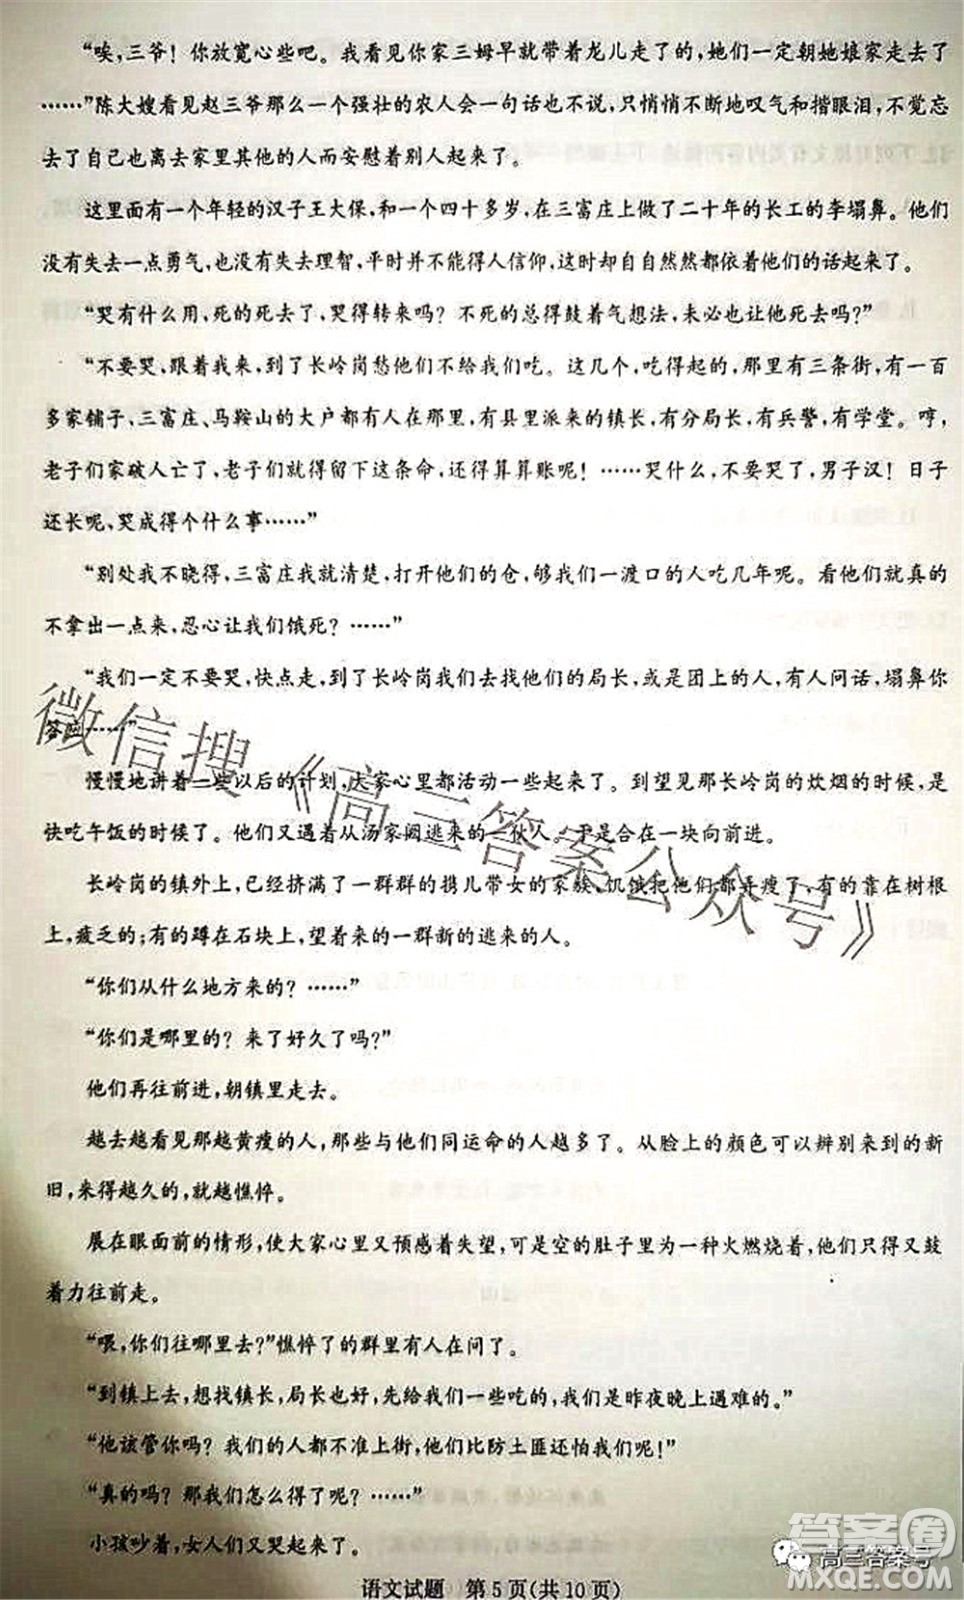 “唉,三爷! 你放宽心些吧。我看见你家三姆早就带着龙儿走了的,她们一定朝她娘家走去了
……”陈大嫂看见赵三爷那么一个强壮的农人会一句话也不说,只悄悄不断地叹气和揩眼泪,不觉忘
去了自己也离去家里其他的人而安慰着别人起来了。
这里面有一个年轻的汉子王大保,和一个四十多岁,在三富庄上做了二十年的长工的李塌鼻。他们
没有失去一点勇气,也没有失去理智,平时并不能得人信仰,这时却自自然然都依着他们的话起来了。
“哭有什么用,死的死去了,哭得转来吗? 不死的总得鼓着气想法,未必也让他死去吗?”
“不要哭,跟着我来,到了长岭岗愁他们不给我们吃。这几个,吃得起的,那里有三条街,有一百
多家铺子,三富庄、马鞍山的大户都有人在那里,有县里派来的镇长,有分局长,有兵警,有学堂。哼,
老子们家破人亡了,老子们就得留下这条命,还得算算账呢! ……哭什么,不要哭了,男子汉! 日子
还长呢,哭成得个什么事……”
“别处我不晓得,三富庄我就清楚,打开他们的仓,够我们一渡口的人吃几年呢。看他们就真的
不拿出一点来,忍心让我们饿死? ……”
“我们一定不要哭,快点走,到了长岭岗我们去找他们的局长,或是团上的人,有人问话,塌鼻你
答应……”
慢慢地讲着一些以后的计划,大家心里都活动一些起来了。到望见那长岭岗的炊烟的时候,是
快吃午饭的时候了。他们又遇着从汤家阙逃来的一伙人。于是合在一块向前进。
长岭岗的镇外上,已经挤满了一群群的携儿带女的家族、饥饿把他们都弄瘦了,有的靠在树根
上,疲乏的;有的蹲在石块上,望着来的一群新的逃来的人。
“你们从什么地方来的? ……”
“你们是哪里的? 来了好久了吗?”
他们再往前进,朝镇里走去。
越去越看见那越黄瘦的人,那些与他们同运命的人越多了。从脸上的颜色可以辨别来到的新
旧,来得越久的,就越憔悴。
展在眼面前的情形,使大家心里又预感着失望,可是空的肚子里为一种火燃烧着,他们只得又鼓
着力往前走。
“喂,你们往哪里去?”憔悴了的群里有人在问了。
“到镇上去,想找镇长,局长也好,先给我们一些吃的,我们是昨夜晚上遇难的。”
“他该管你吗? 我们的人都不准上街,他们比防土匪还怕我们呢!”
“真的吗? 那我们怎么得了呢? ……”
小孩吵着,女人们又哭起来了。
语文试题 第5页(共10页)
微信搜《高三答案公众号》
高三答案号
答案圈
MXQE.COM